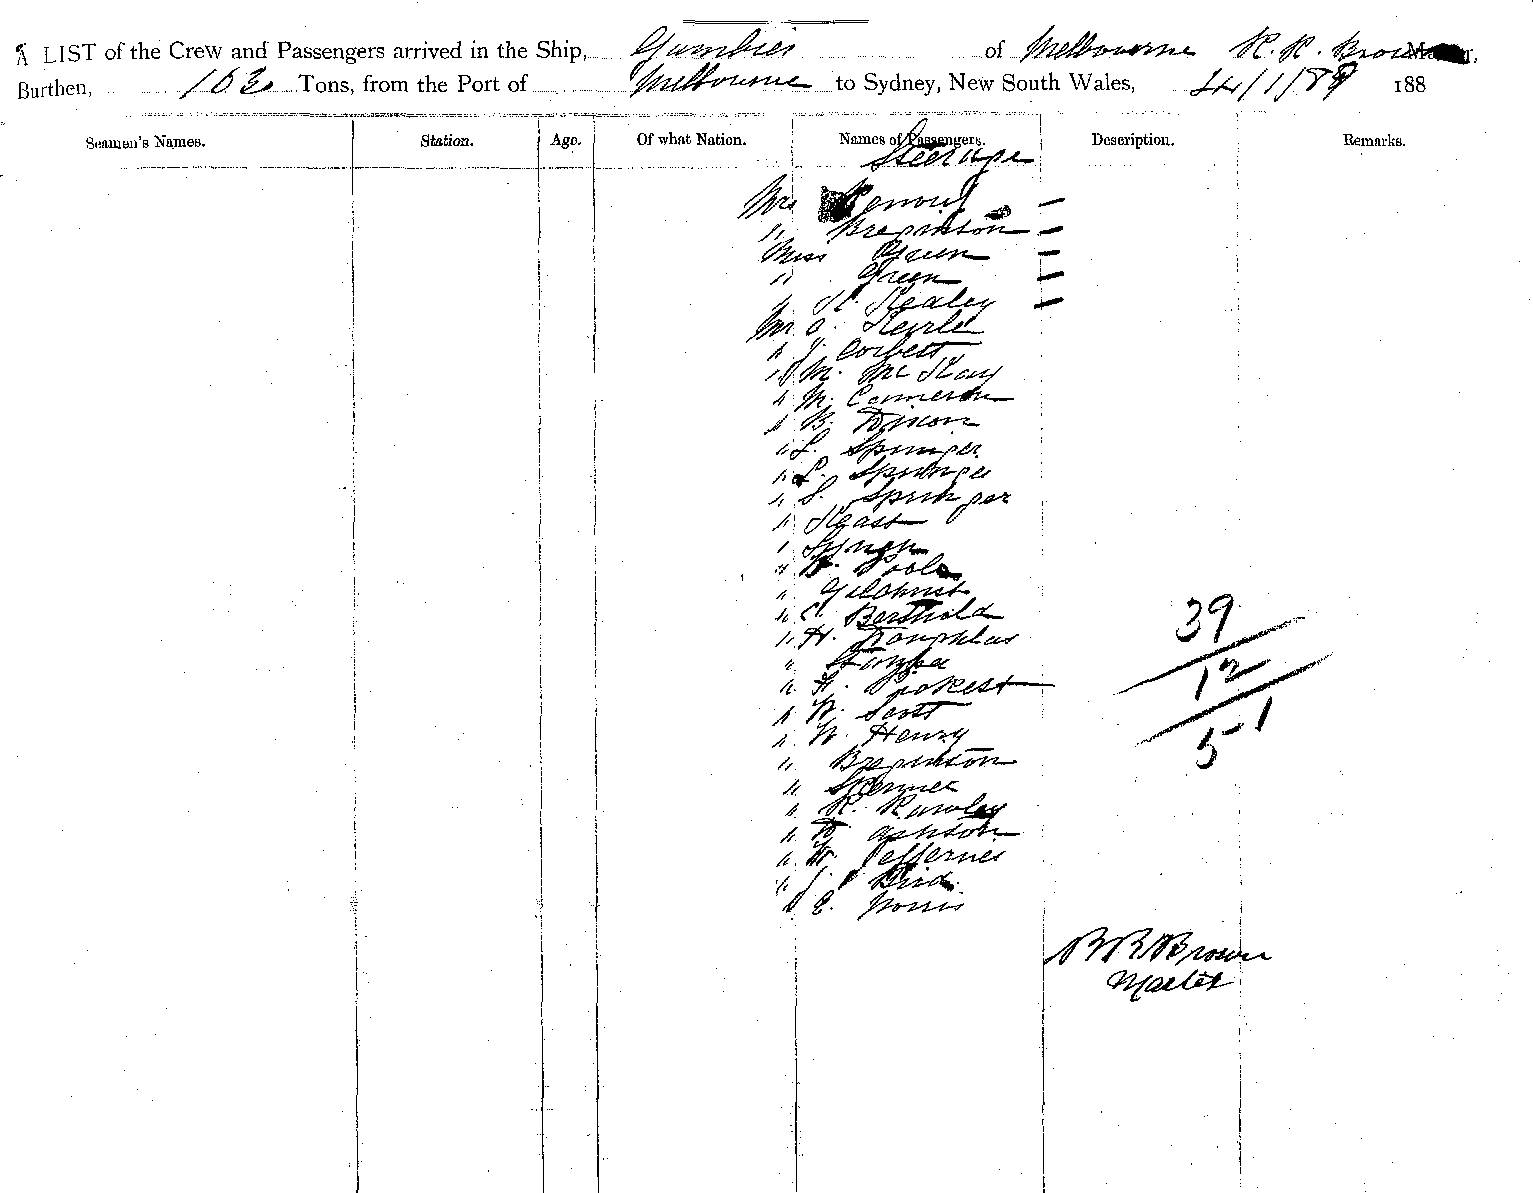 A LIST of the Crew and Passengers arrived in the Ship, Gambier of Melbourne R. R. Brown
Burthen, Tons, from the Port of Melbourne to Sydney, New South Wales, 188
Seamen's Names. Station. Age. Of what Nation. Names of Passengers. Description. Remarks.
Steerage
Mrs —
" Breginson —
Miss Green —
" Green —
" K. Kealey —
Mr O. Kerle
" J. Corbett
" M. McKay
" M. Cameron
" B. Dixon
" L. Springer
" L. Springer
" S. Springer
" Keast
"
" Poole
" Gilchrist
" C. Berthold
" H.
"
" H.
" W. Scott
" W. Henry
" Breginson
" Skinner
" R. Rowley
" Ashton
" W. Jefferies
" J. Bird
" E. Norris
39
12
51
R R Brown
Master